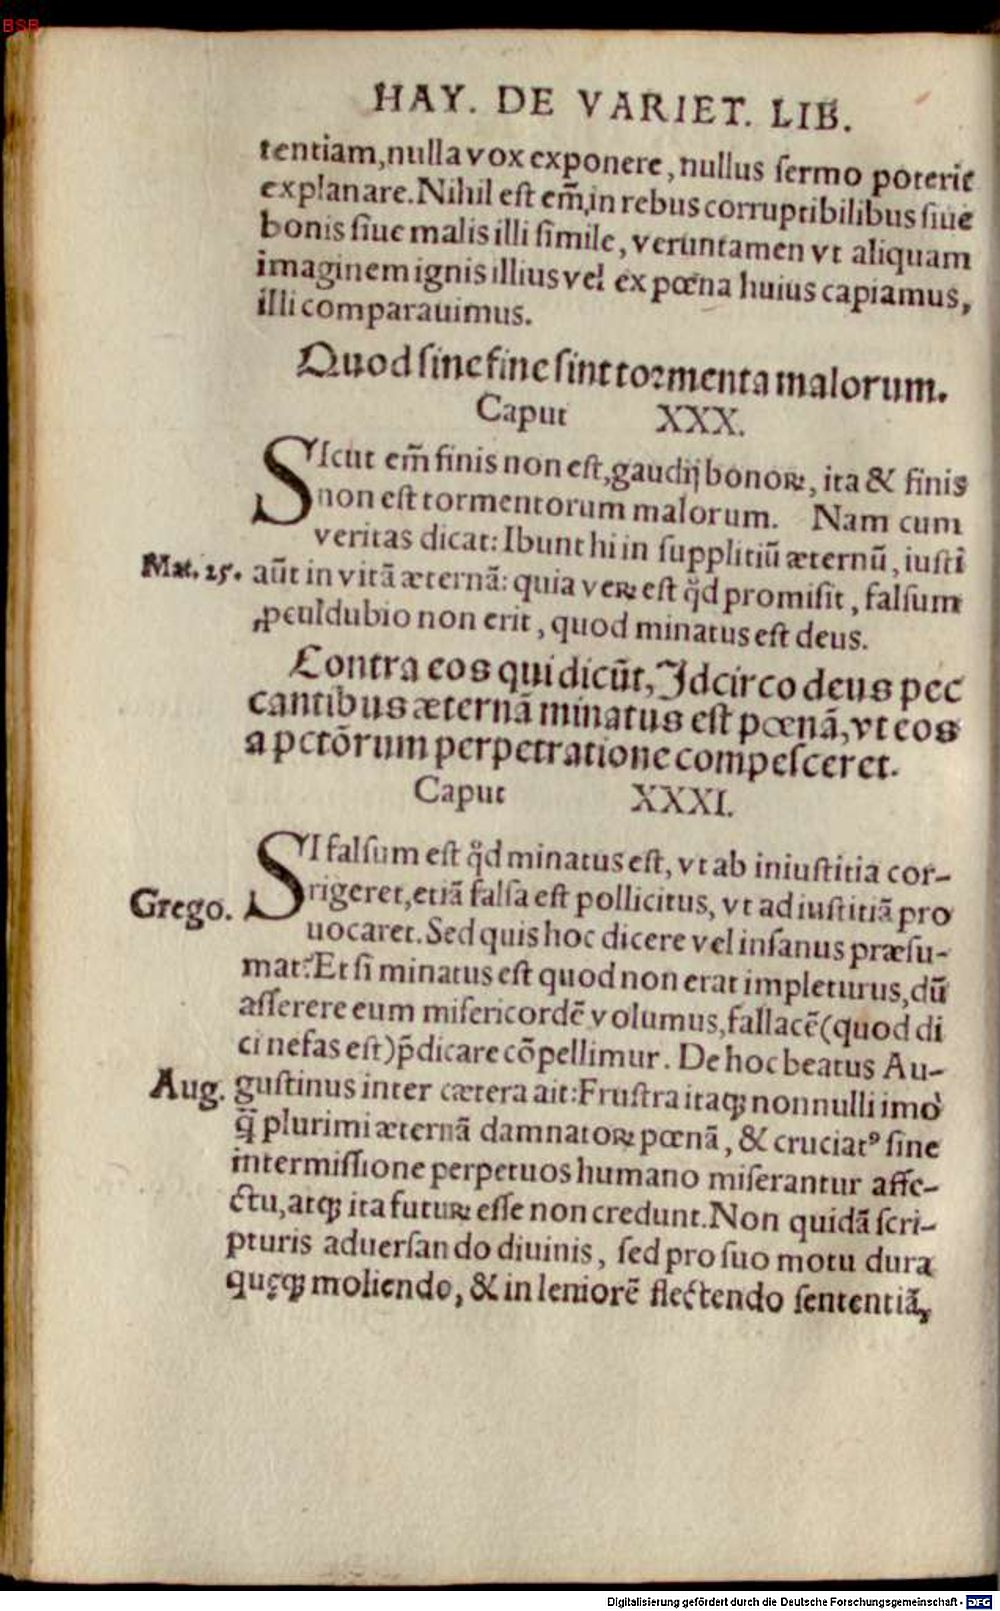 BSB
HAY. DE VARIET. LIB.
tentiam, nulla vox exponere, nullus ſermo poterit
explanare. Nihil eſt em̃, in rebus corruptibilibus ſiue
bonis ſiue malis illi ſimile, veruntamen vt aliquam
imaginem ignis illius vel ex pœna huius capiamus,
illi comparauimus.
Quod ſine fine ſint toꝛmenta malorum.
Caput XXX.
SIcut em̃ finis non eſt, gaudij bonoꝝ, ita & finis
non eſt tormentorum malorum. Nam cum
veritas dicat: Ibunt hi in ſupplitiũ æternũ, iuſti
Mat. 25. aũt in vitã æternã: quia veꝝ eſt q̃d promiſit, falſum
ꝓculdubio non erit, quod minatus eſt deus.
Contra eos qui dicũt, Idcirco deus pec
cantibus æternã minatus eſt pœnã, vt eos
a pctõrum perpetratione compeſceret.
Caput XXXI.
SI falſum eſt q̃d minatus eſt, vt ab iniuſtitia cor-
Grego. rigeret, etiã falſa eſt pollicitus, vt ad iuſtitiã pro
uocaret. Sed quis hoc dicere vel inſanus præſu-
mat? Et ſi minatus eſt quod non erat impleturus, dũ
aſſerere eum miſericordẽ volumus, fallacẽ (quod di
ci nefas eſt) p̃dicare cõpellimur. De hoc beatus Au-
Aug. guſtinus inter cætera ait: Fruſtra itaqꝫ nonnulli imò
q̃ plurimi æternã damnatoꝝ pœnã, & cruciatꝰ ſine
intermiſſione perpetuos humano miſerantur affe-
ctu, atqꝫ ita futuꝝ eſſe non credunt. Non quidã ſcri-
pturis aduerſando diuinis, ſed pro ſuo motu dura
quęqꝫ moliendo, & in leniorẽ flectendo ſententiã,
Digitalisierung gefördert durch die Deutsche Forschungsgemeinschaft - DFG